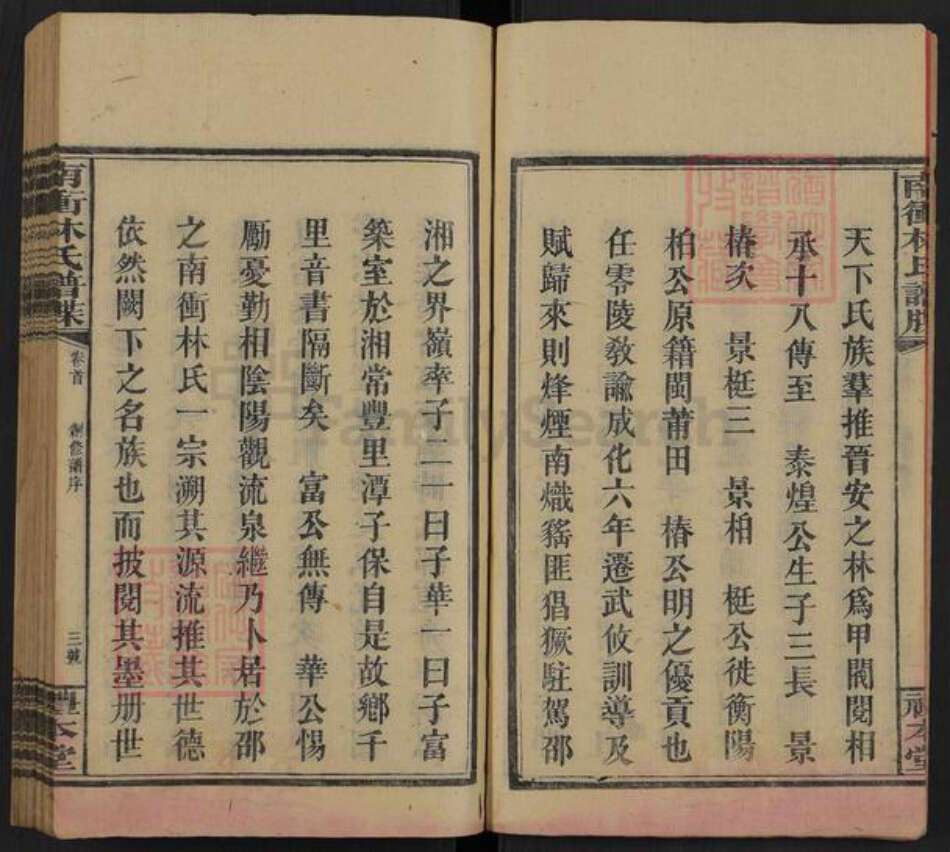 天下氏族羣推晉安之林爲甲閥閱相
承十八傳至　泰煌公生子三長　景
椿次　景梃三　景柏　梃公徙衡陽
柏公原籍閩莆田　椿公明之優貢也
任零陵敎諭成化六年遷武攸訓導及
賦歸來則烽煙南熾猺匪猖獗駐駕邵
南衝林氏譜牒
禮本堂
湘之界嶺率子二一曰子華一曰子富
築室於湘常豐里潭子保自是故鄉千
里音書隔斷矣　富公無傳　華公惕
勵憂勤相陰陽觀流泉繼乃卜居於邵
之南衝林氏一宗溯其源流推其世德
依然闕下之名族也而披閱其墨册世
南衝林氏譜牒
卷首
創修譜序
三號
禮本堂
FamilySearch